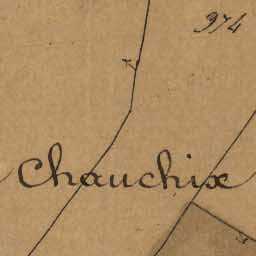 974
Chauchix